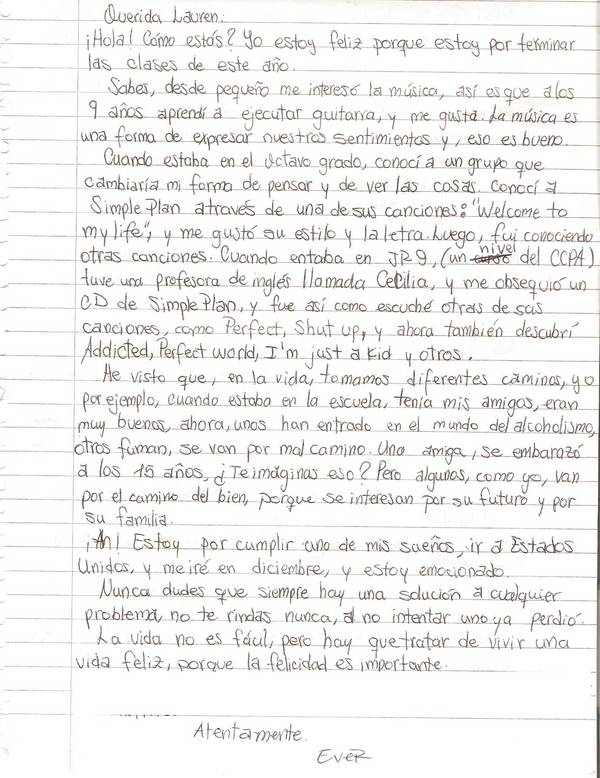 Querida Lauren:
¡Hola! Cómo estás? Yo estoy feliz porque estoy por terminar
las clases de este año.
Sabes, desde pequeño me interesó la música, así es que a los
9 años aprendí a ejecutar guitarra, y me gusta. La música es
una forma de expresar nuestros sentimientos y, eso es bueno.
Cuando estaba en el octavo grado, conocí a un grupo que
cambiaría mi forma de pensar y de ver las cosas. Conocí a
Simple Plan através de una de sus canciones: "Welcome to
my life", y me gustó su estilo y la letra. Luego, fui conociendo
otras canciones. Cuando entaba en JR9, (un nivel del CCPA)
tuve una profesora de inglés llamada Cecilia, y me obsequió un
CD de Simple Plan, y fue así como escuché otras de sus
canciones, como Perfect, Shut up, y ahora también descubrí
Addicted, Perfect world, I'm just a kid y otros.
He visto que, en la vida, tomamos diferentes caminos, yo
por ejemplo, cuando estaba en la escuela, tenía mis amigos, eran
muy buenos, ahora, unos han entrado en el mundo del alcoholismo,
otros fuman, se van por mal camino. Una amiga, se embarazó
a los 15 años, ¿Te imaginas eso? Pero algunos, como yo, van
por el camino del bien, porque se interesan por su futuro y por
su familia.
¡Ah! Estoy por cumplir uno de mis sueños, ir a Estados
Unidos, y me iré en diciembre, y estoy emocionado.
Nunca dudes que siempre hay una solución a cualquier
problema, no te rindas nunca, al no intentar uno ya perdió.
La vida no es fácil, pero hay que tratar de vivir una
vida feliz, porque la felicidad es importante.
Atentamente.
Ever